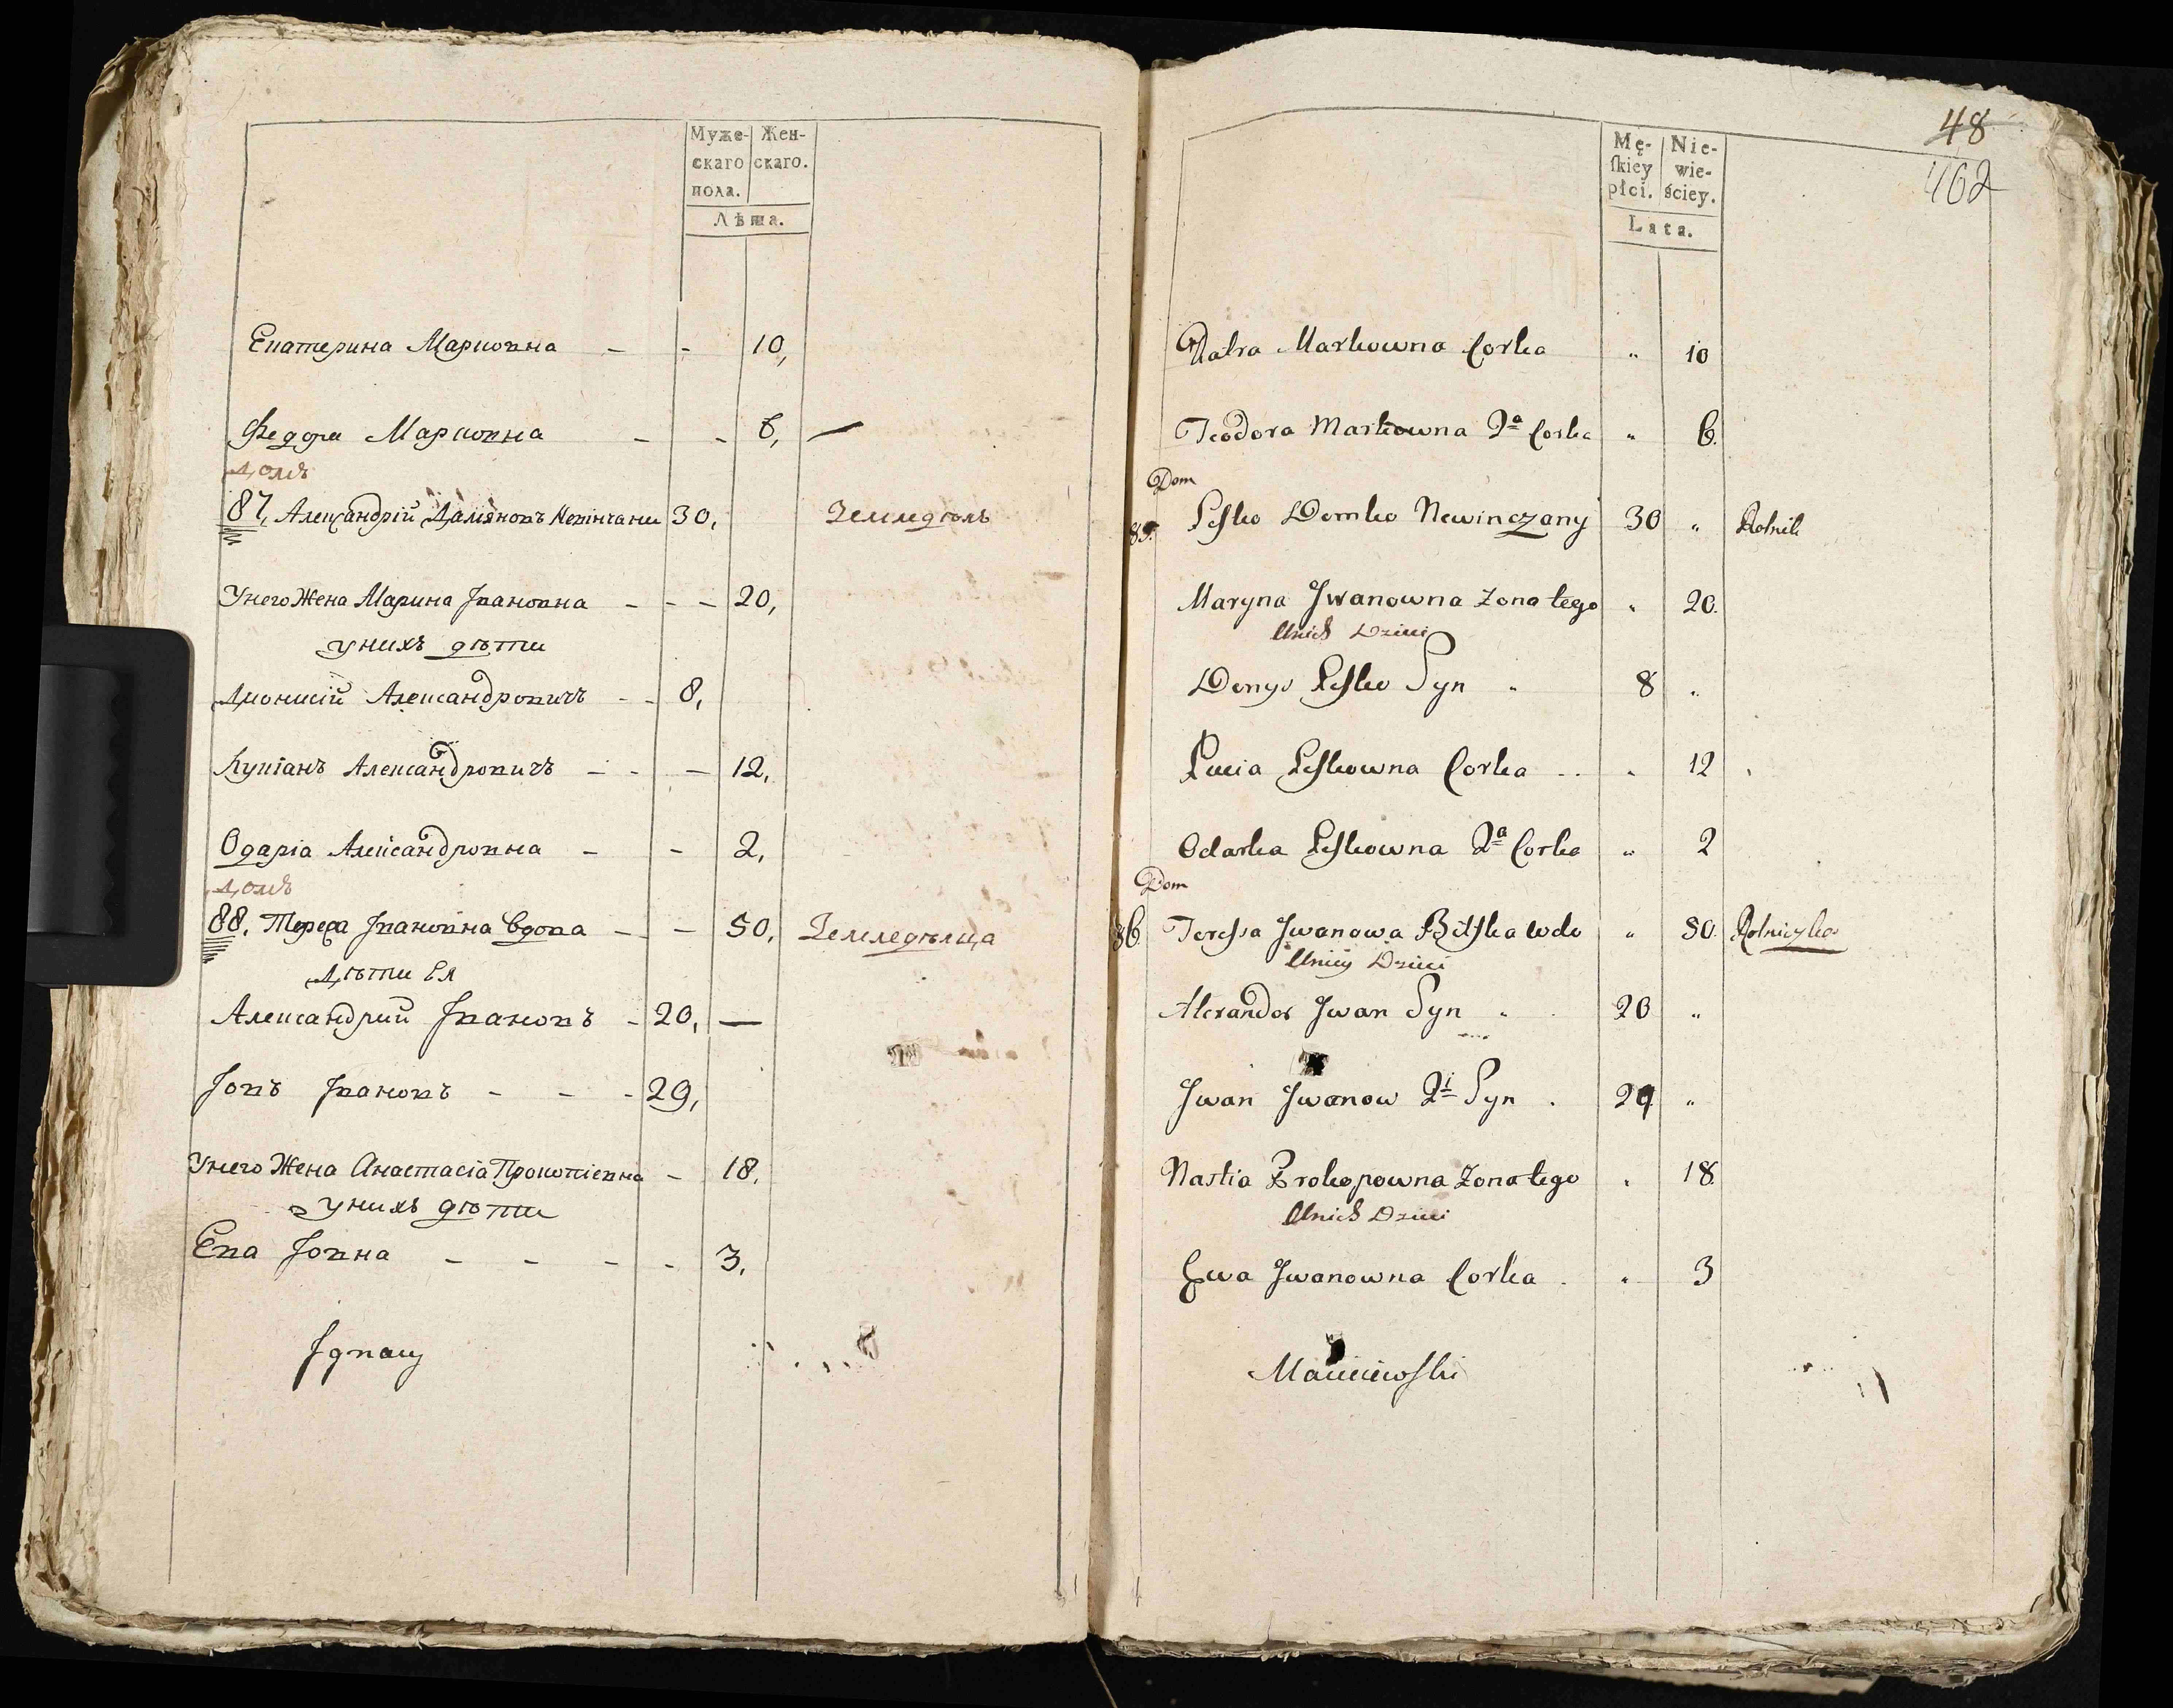 Муже- Жен-
скаго скаго.
пола.
Лѣта.
Екатерина Марковна - - 10,
Федора Марковна - - 6, —
Домъ
87, Алеѯандрій Даміяновъ Невінчани 30, Земледѣль
Унего Жена Марина Івановна - - - 20,
унихъ дѣти
Дионисій Александровичъ - - 8,
Александровичъ - - - 12,
Одаріа Александровна - - 2,
Домъ
88, Тереса Івановна вдова - - 50, Земледѣлица
Дѣти Ея
Александрий Івановъ - 20, —
Івановъ - - - 29,
Унего Жена Анастасіа Прокопіевна - 18,
унихъ дѣти
Ева - - - - 3,
Ignacy
48
462
Mę- Nie-
skiey wie-
płci. ściey.
Lata.
Markowna Corka " 10
Teodora Markowna 2a Corka " 6.
Dom
85. Lesko Demko Newinczany 30 " Rolnik
Maryna Jwanowna Zona tego " 20.
Unich Dzieci
Denys Lesko Syn " 8 "
Lucia Leskowna Corka . . " 12
Odarka Leskowna 2a Corka " 2
Dom
86. Teressa Jwanowa wdo " 50. Rolniczka
Uniey Dzieci
Alexander Jwan Syn " 20 "
Jwan Jwanow 2i Syn . 29 "
Nastia Prokopowna Zona tego " 18.
Unich Dzieci
Ewa Jwanowna Corka . " 3